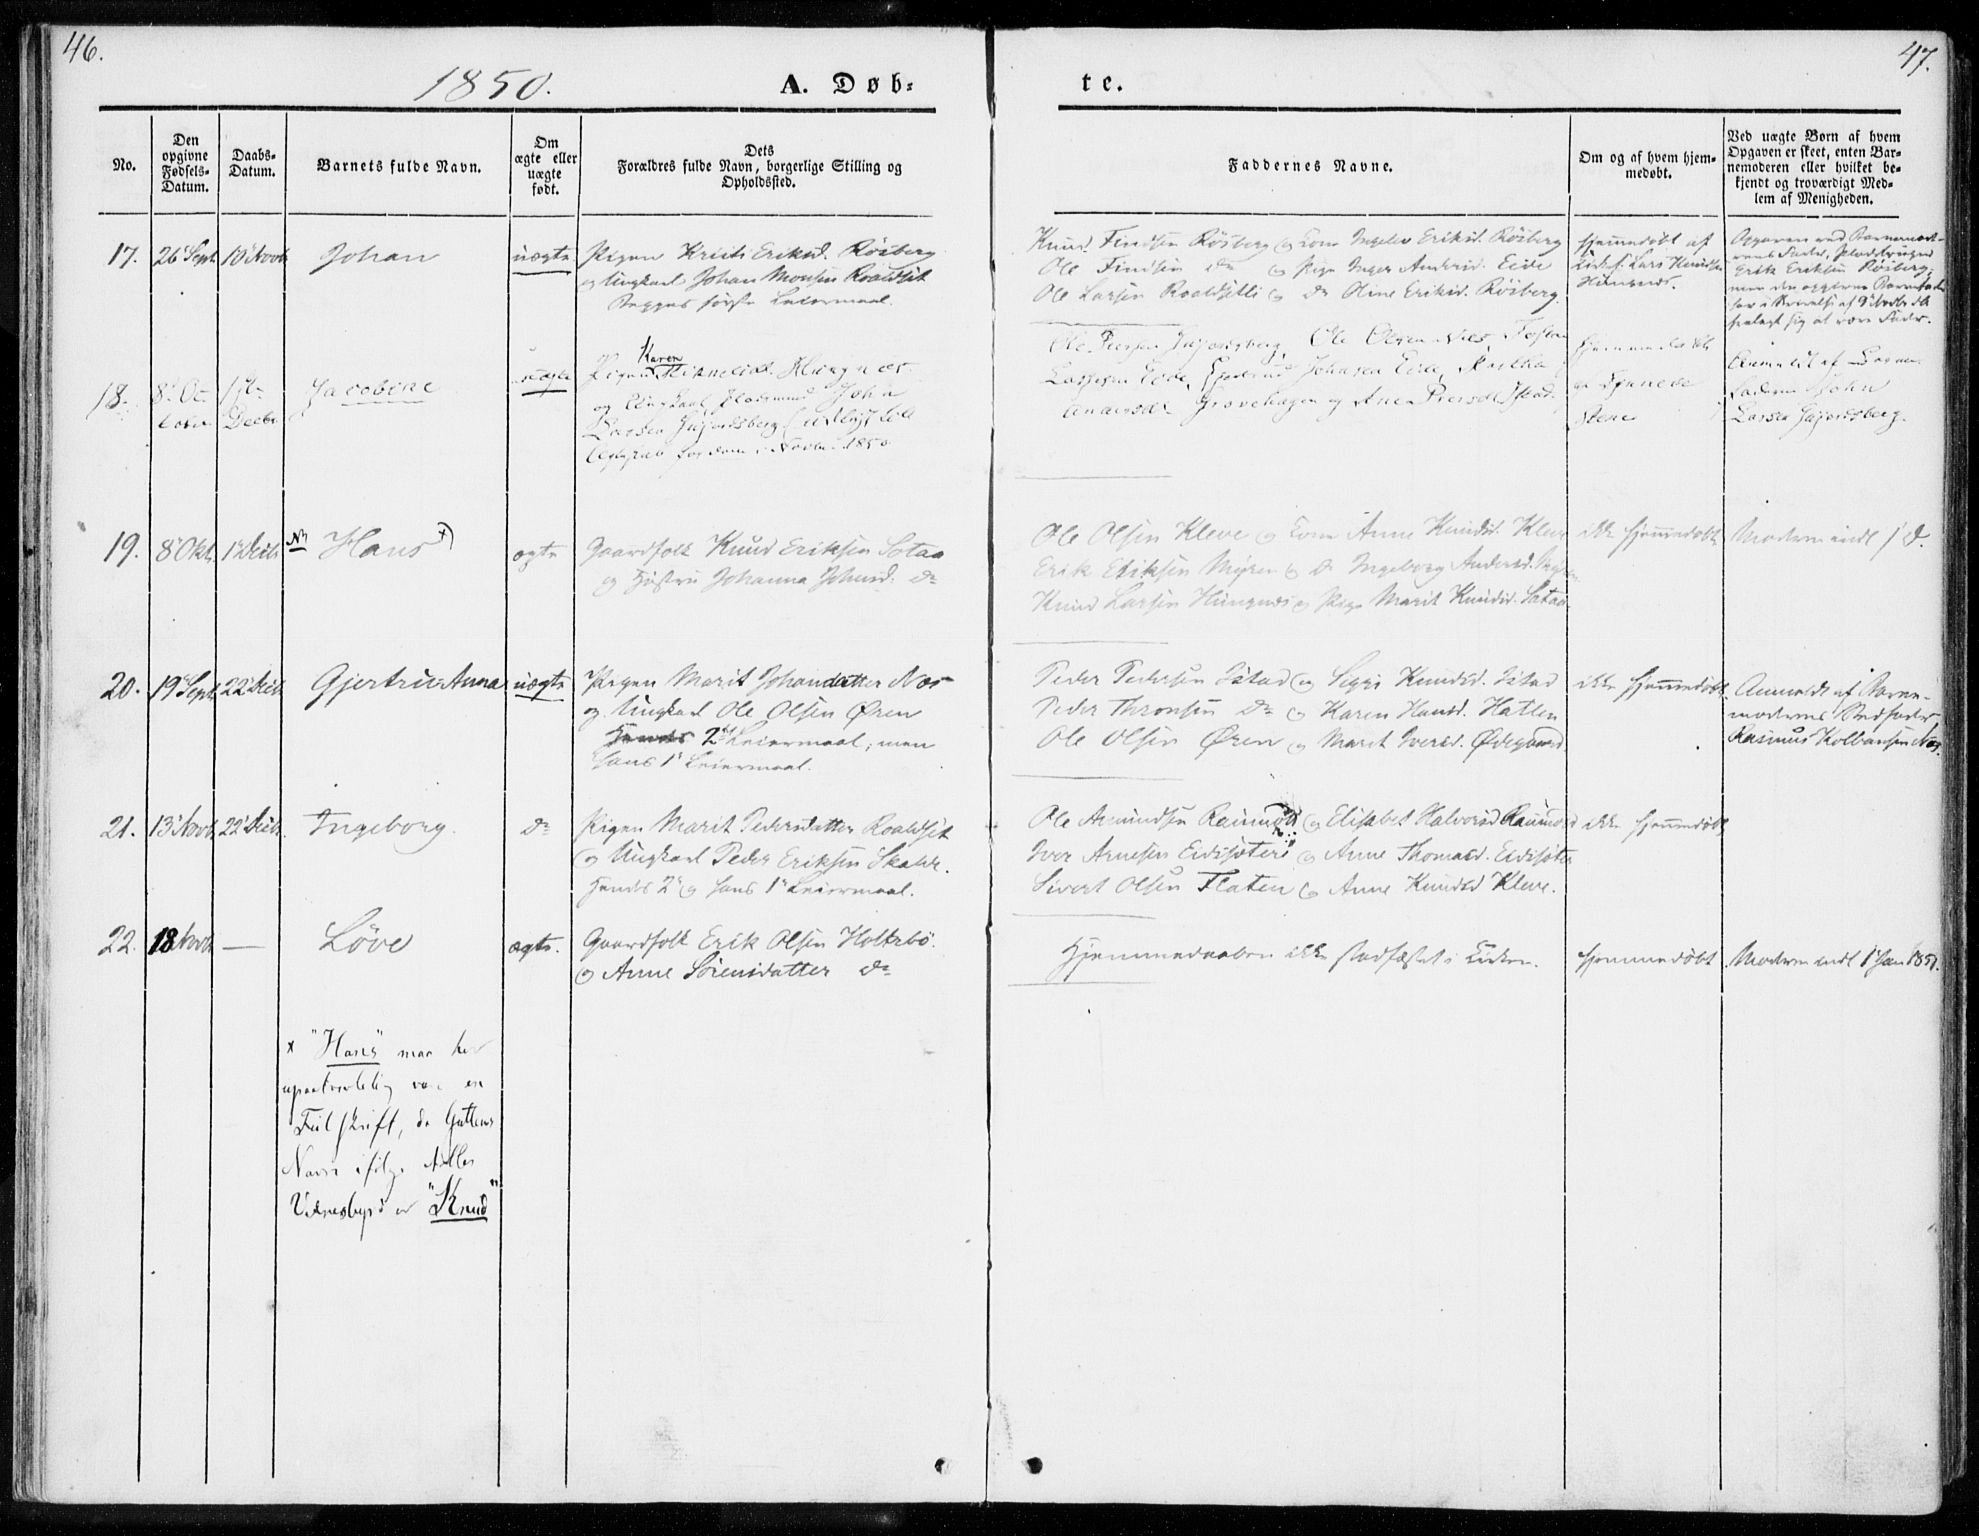 46.
47.
1850.
A. Døb-
te.
No.
Den opgivne Fødsels-Datum.
Daabs-Datum.
Barnets fulde Navn.
Om ægte eller uægte født.
Dets Forældres fulde Navn, borgerlige Stilling og Opholdssted.
Faddernes Navne.
Om og af hvem hjem-medøbt.
Ved uægte Børn af hvem Opgaven er skeet, enten Bar-nemoderen eller hvilket be-kjendt og troværdigt Med-lem af Menigheden.
17. 26 Sept. 10 Novb. Johan uægte
Pigen Kristi Eriksd. Røsberg
og Ungkarl Johan Monsen Roaldset
Begges første Leiermaal.
Knud Findsen Røsberg og Kone Ingelev Eriksd. Røsberg
Ole Findsen do og Pige Inger Andersd. Eide
Ole Larsen Roaldsetli og do Oline Eriksd. Røsberg.
hjemmedøbt af
Lars Knudsen
Hungnes.
Opgaven ved Barnemod-
erens Fader,
Erik Eriksen Røsberg;
men den opgivne Barnefader
har i Skrivelse af 9 Novbr
fralagt sig at være Fader.
18. 8de Oc-
tober
1ste
Decbr
Jacobine
uægte
Pigen Karen Hungnes
og Ungkarl John
Larsen Gujordsberg
Novbr. 1850.
Ole Olsen
Larssen Eide, Johnsen Eide, Martha
Andersdr Grovehagen og Ane Persdr Istad.
Stene
Anmeldt af Barne-
faderen John
Larsen Gujordsberg.
19. 8 Okt. 1 Decb. NB Hans x) ægte
Gaardfolk Knud Eriksen Sotaa
og Hustru Johanna Johnsd. do
Ole Olsen Kleve og Kone Anne Knudsd. Kleve
Erik Eriksen Myren og do Ingeborg Andersd.
Knud Larsen Hungnes og Pige Marit Knudsd. Sotaa.
ikke hjemmedøbt.
Moderen indl s. D.
20. 19 Sept. 22 Decb. Gjertrud Anna uægte
Pigen Marit Johansdatter Nos
og Ungkarl Ole Olsen Øren
Hendes 2det Leiermaal; men
hans 1ste Leiermaal.
Peder Pedersen Istad og Siggri Knudsd. Istad
Peder Thronsen do og Karen Hansd. Hatlen
Ole Olsen Øren og Marit Iversd. Ødegaard
ikke hjemmedøbt.
Anmeldt af Barne-
moderens Stedfader
Rasmus Kolbansen Nos.
21. 13 Novb. 22 Decb. Ingeborg. do
Pigen Marit Pedersdatter Roaldset
og Ungkarl Peder Eriksen Skalde.
Hendes 2 og hans 1ste Leiermaal.
Ole Amundsen Raumod og Elisabet Halvorsd Raumod
Iver Arnesen Eidsæter og Anne Thomasd. Eidsæter
Sivert Olsen Flaten og Anne Knudsd Kleve.
ikke hjemmedøbt
22. 18 Novb. — Løve ægte.
Gaardfolk Erik Olsen Holtebø.
og Anne Sørensdatter do
Hjemmedaaben ikke stadfæstet i Kirken.
hjemmedøbt
Moderen indl 1 Jan 1851.
x "Hans" maa her
upaatvivlelig være en
Feilskrift, da Guttens
Navn ifølge Alles
Vidnesbyrd er "Knud"